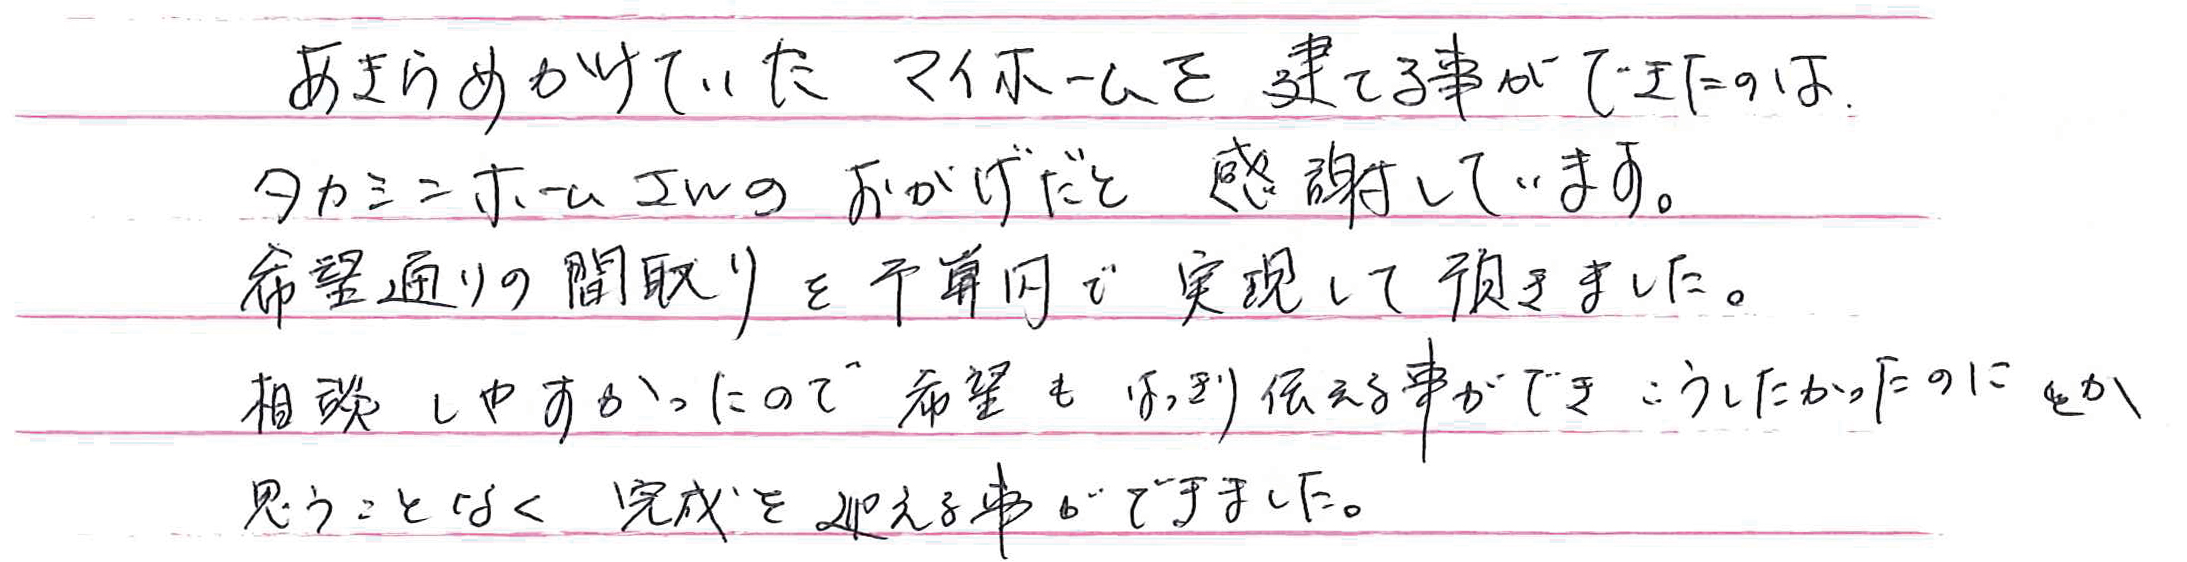 あきらめかけていた マイホームを 建てる事ができたのは.
タカミニホームIwの おかげだと 感謝しています。
希望通りの間取りを予算内で 実現して頂きました。
相談しやすかったので 希望も はっきり伝える事ができ こうしたかったのに とか
思うことなく 完成を迎える事ができました。